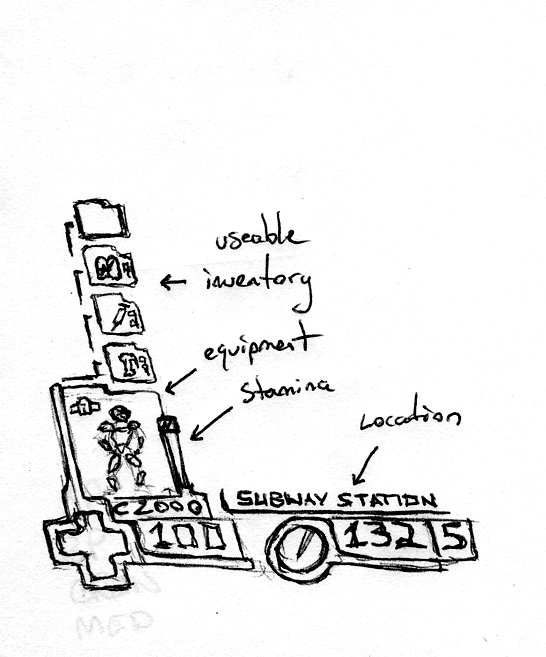 useable
inventory
equipment
Stamina
Location
C2000
SUBWAY STATION
100
132 5
MED